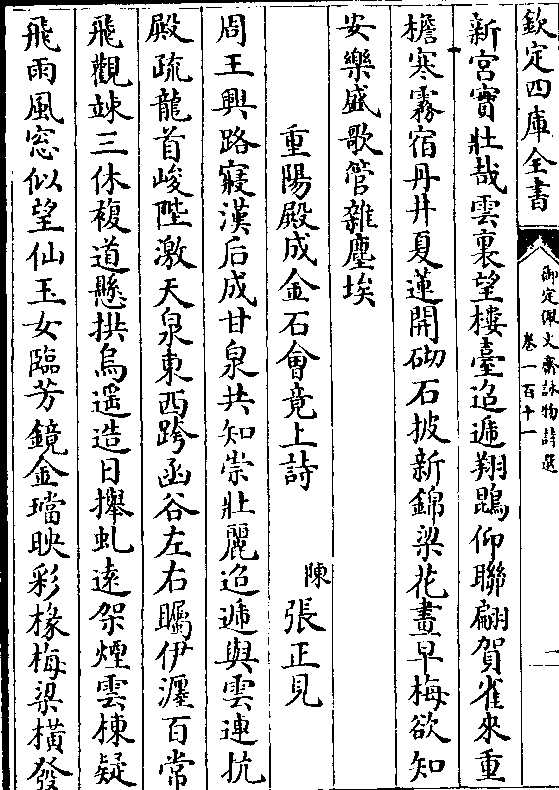 欽定四庫全書
御定佩文齋詠物詩選
卷一百十一
新宫實壯哉雲裏望樓臺迢遞翔鵾仰聯翩賀雀來重
檐寒霧宿丹井夏蓮開砌石披新錦梁花畫早梅欲知
安樂盛歌管雜塵埃
重陽殿成金石會竟上詩 陳 張正見
周王興路寢漢后成甘泉共知崇壯麗迢遞與雲連抗
殿疏龍首峻陛激天泉東西跨函谷左右矚伊瀍百常
飛觀竦三休複道懸拱烏遥造日攀虬遠架煙雲棟疑
飛雨風窓似望仙玉女臨芳鏡金璫映彩椽梅梁横發